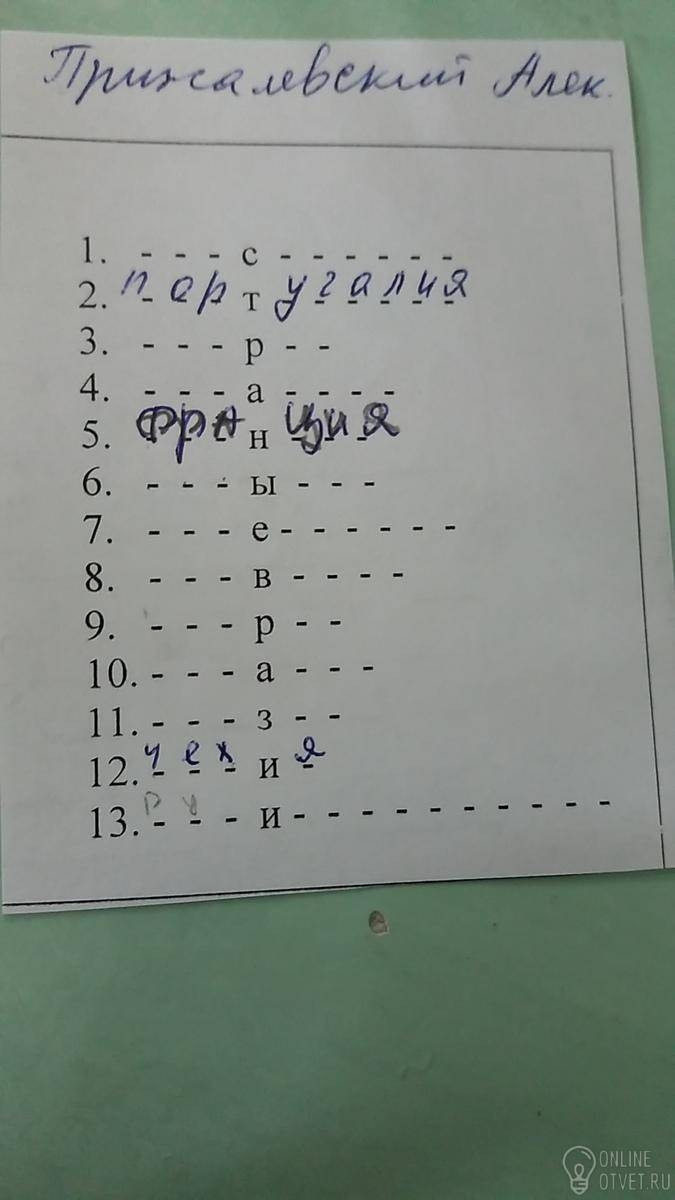 Пржалевский Алек.
1. - - - с - - - - - -
2. п о р т у г а л и я
3. - - - р - -
4. - - - а - - - -
5. ф р а н ц и я
6. - - - ы - - -
7. - - - е - - - - - -
8. - - - в - - - -
9. - - - р - -
10. - - - а - - -
11. - - - з - -
12. ч е х и я
13. р у - и - - - - - - - - - -
ONLINE
OTVET.RU